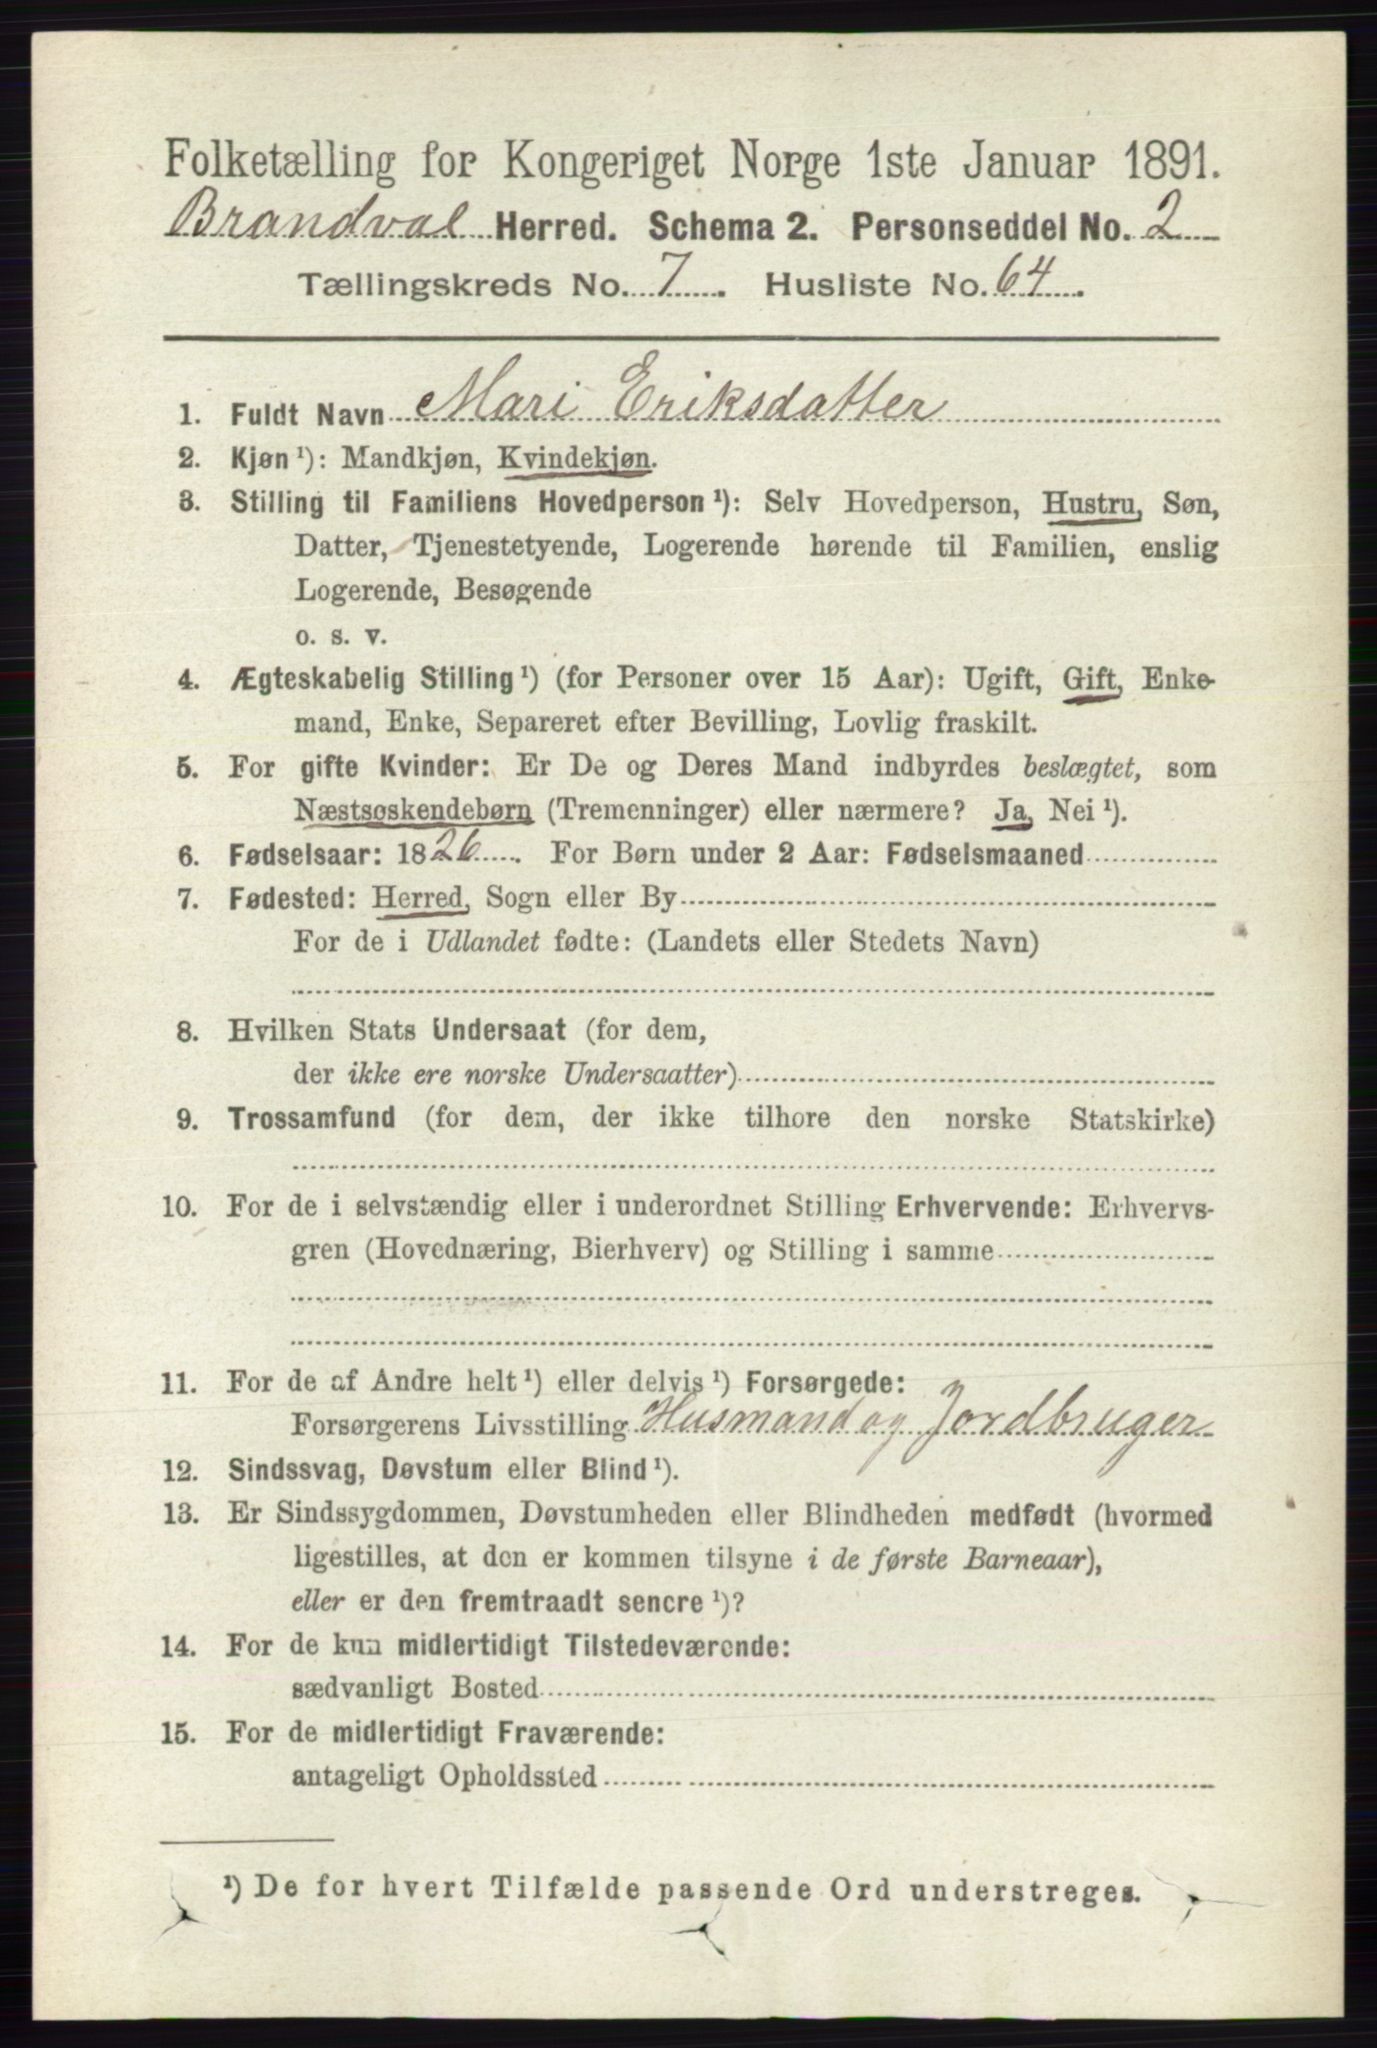 Folketælling for Kongeriget Norge 1ste Januar 1891.
Brandval Herred. Schema 2. Personseddel No. 2
Tællingskreds No. 7. Husliste No. 64.
1. Fuldt Navn Mari Eriksdatter
2. Kjøn ¹): Mandkjøn, Kvindekjøn.
3. Stilling til Familiens Hovedperson ¹): Selv Hovedperson, Hustru, Søn,
Datter, Tjenestetyende, Logerende hørende til Familien, enslig
Logerende, Besøgende
o. s. v.
4. Ægteskabelig Stilling ¹) (for Personer over 15 Aar): Ugift, Gift, Enke-
mand, Enke, Separeret efter Bevilling, Lovlig fraskilt.
5. For gifte Kvinder: Er De og Deres Mand indbyrdes beslægtet, som
Næstsøskendebørn (Tremenninger) eller nærmere? Ja, Nei ¹).
6. Fødselsaar: 1826. For Børn under 2 Aar: Fødselsmaaned
7. Fødested: Herred, Sogn eller By
For de i Udlandet fødte: (Landets eller Stedets Navn)
8. Hvilken Stats Undersaat (for dem,
der ikke ere norske Undersaatter)
9. Trossamfund (for dem, der ikke tilhøre den norske Statskirke)
10. For de i selvstændig eller i underordnet Stilling Erhvervende: Erhvervs-
gren (Hovednæring, Bierhverv) og Stilling i samme
11. For de af Andre helt ¹) eller delvis ¹) Forsørgede:
Forsørgerens Livsstilling Husmand og Jordbruger
12. Sindssvag, Døvstum eller Blind ¹).
13. Er Sindssygdommen, Døvstumheden eller Blindheden medfødt (hvormed
ligestilles, at den er kommen tilsyne i de første Barneaar),
eller er den fremtraadt senere ¹)?
14. For de kun midlertidigt Tilstedeværende:
sædvanligt Bosted
15. For de midlertidigt Fraværende:
antageligt Opholdssted
¹) De for hvert Tilfælde passende Ord understreges.